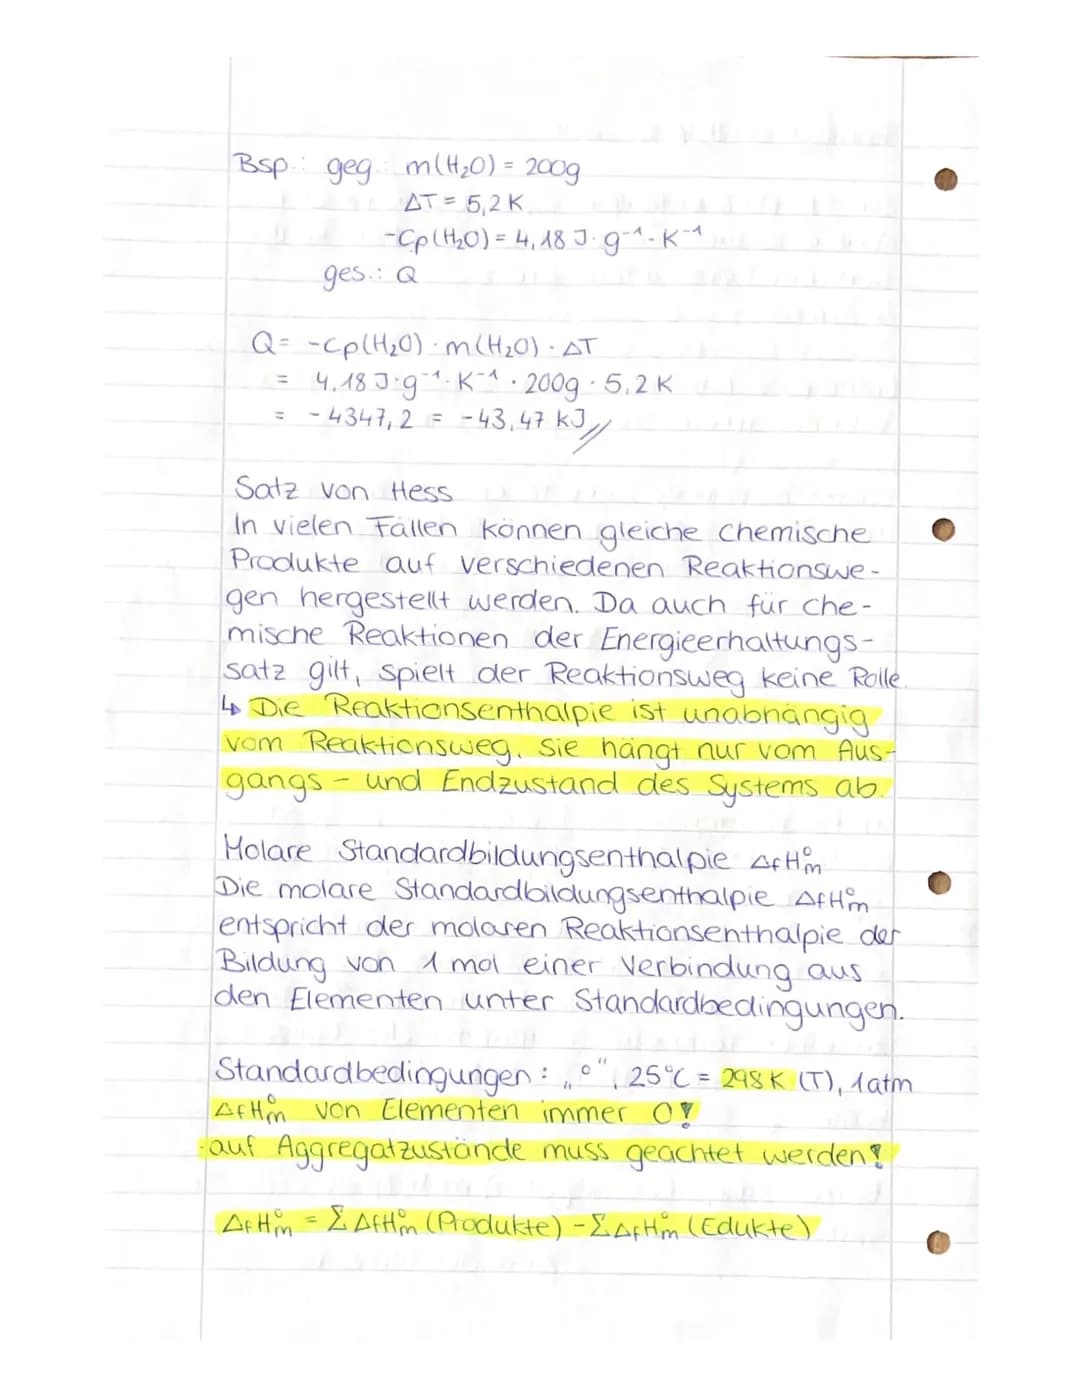 Bsp.: geg.: m(H₂O) = 200g
ΔT = 5,2 K
-Cp(H₂O) = 4,18 J·g⁻¹·K⁻¹
ges.: Q
Q = -Cp(H₂O) · m(H₂O) · ΔT
= 4,18 J·g⁻¹·K⁻¹ · 200g · 5,2 K
= -4347,2 = -43,47 kJ
Satz von Hess
In vielen Fällen können gleiche chemische
Produkte auf verschiedenen Reaktionswe-
gen hergestellt werden. Da auch für che-
mische Reaktionen der Energieerhaltungs-
satz gilt, spielt der Reaktionsweg keine Rolle.
↳ Die Reaktionsenthalpie ist unabhängig
vom Reaktionsweg. Sie hängt nur vom Aus-
gangs- und Endzustand des Systems ab.
Molare Standardbildungsenthalpie ΔfH°m
Die molare Standardbildungsenthalpie ΔfH°m
entspricht der molaren Reaktionsenthalpie der
Bildung von 1 mol einer Verbindung aus
den Elementen unter Standardbedingungen.
Standardbedingungen: „°“, 25°C = 298 K (T), 1atm
ΔfH°m von Elementen immer 0!
-auf Aggregatzustände muss geachtet werden!
ΔfH°m = Σ ΔfH°m (Produkte) - Σ ΔfH°m (Edukte)